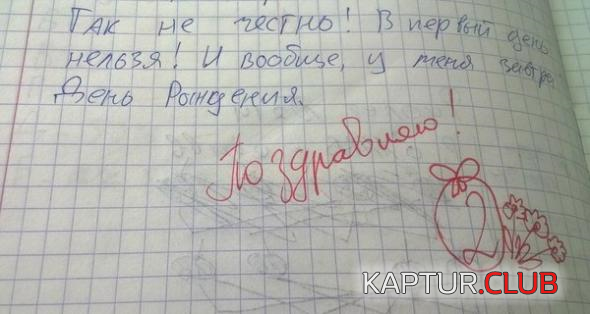 Так не честно! В первый день
нельзя! И вообще, у меня завтра
День Рождения.
Поздравляю!
2
KAPTUR.CLUB